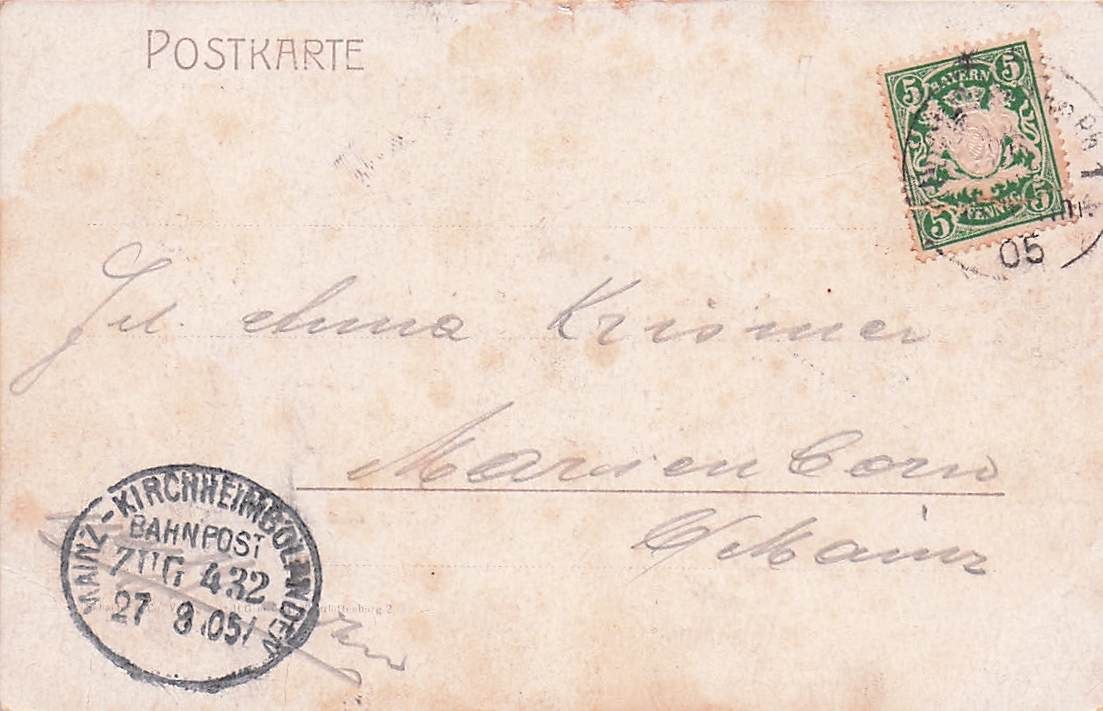 POSTKARTE
5 BAYERN 5
5 PFENNIG 5
1
05
Frl. Anna Krismer
Marienborn
b/Mainz
MAINZ-KIRCHHEIMBOLANDEN
BAHNPOST
ZUG 432
27 9.05